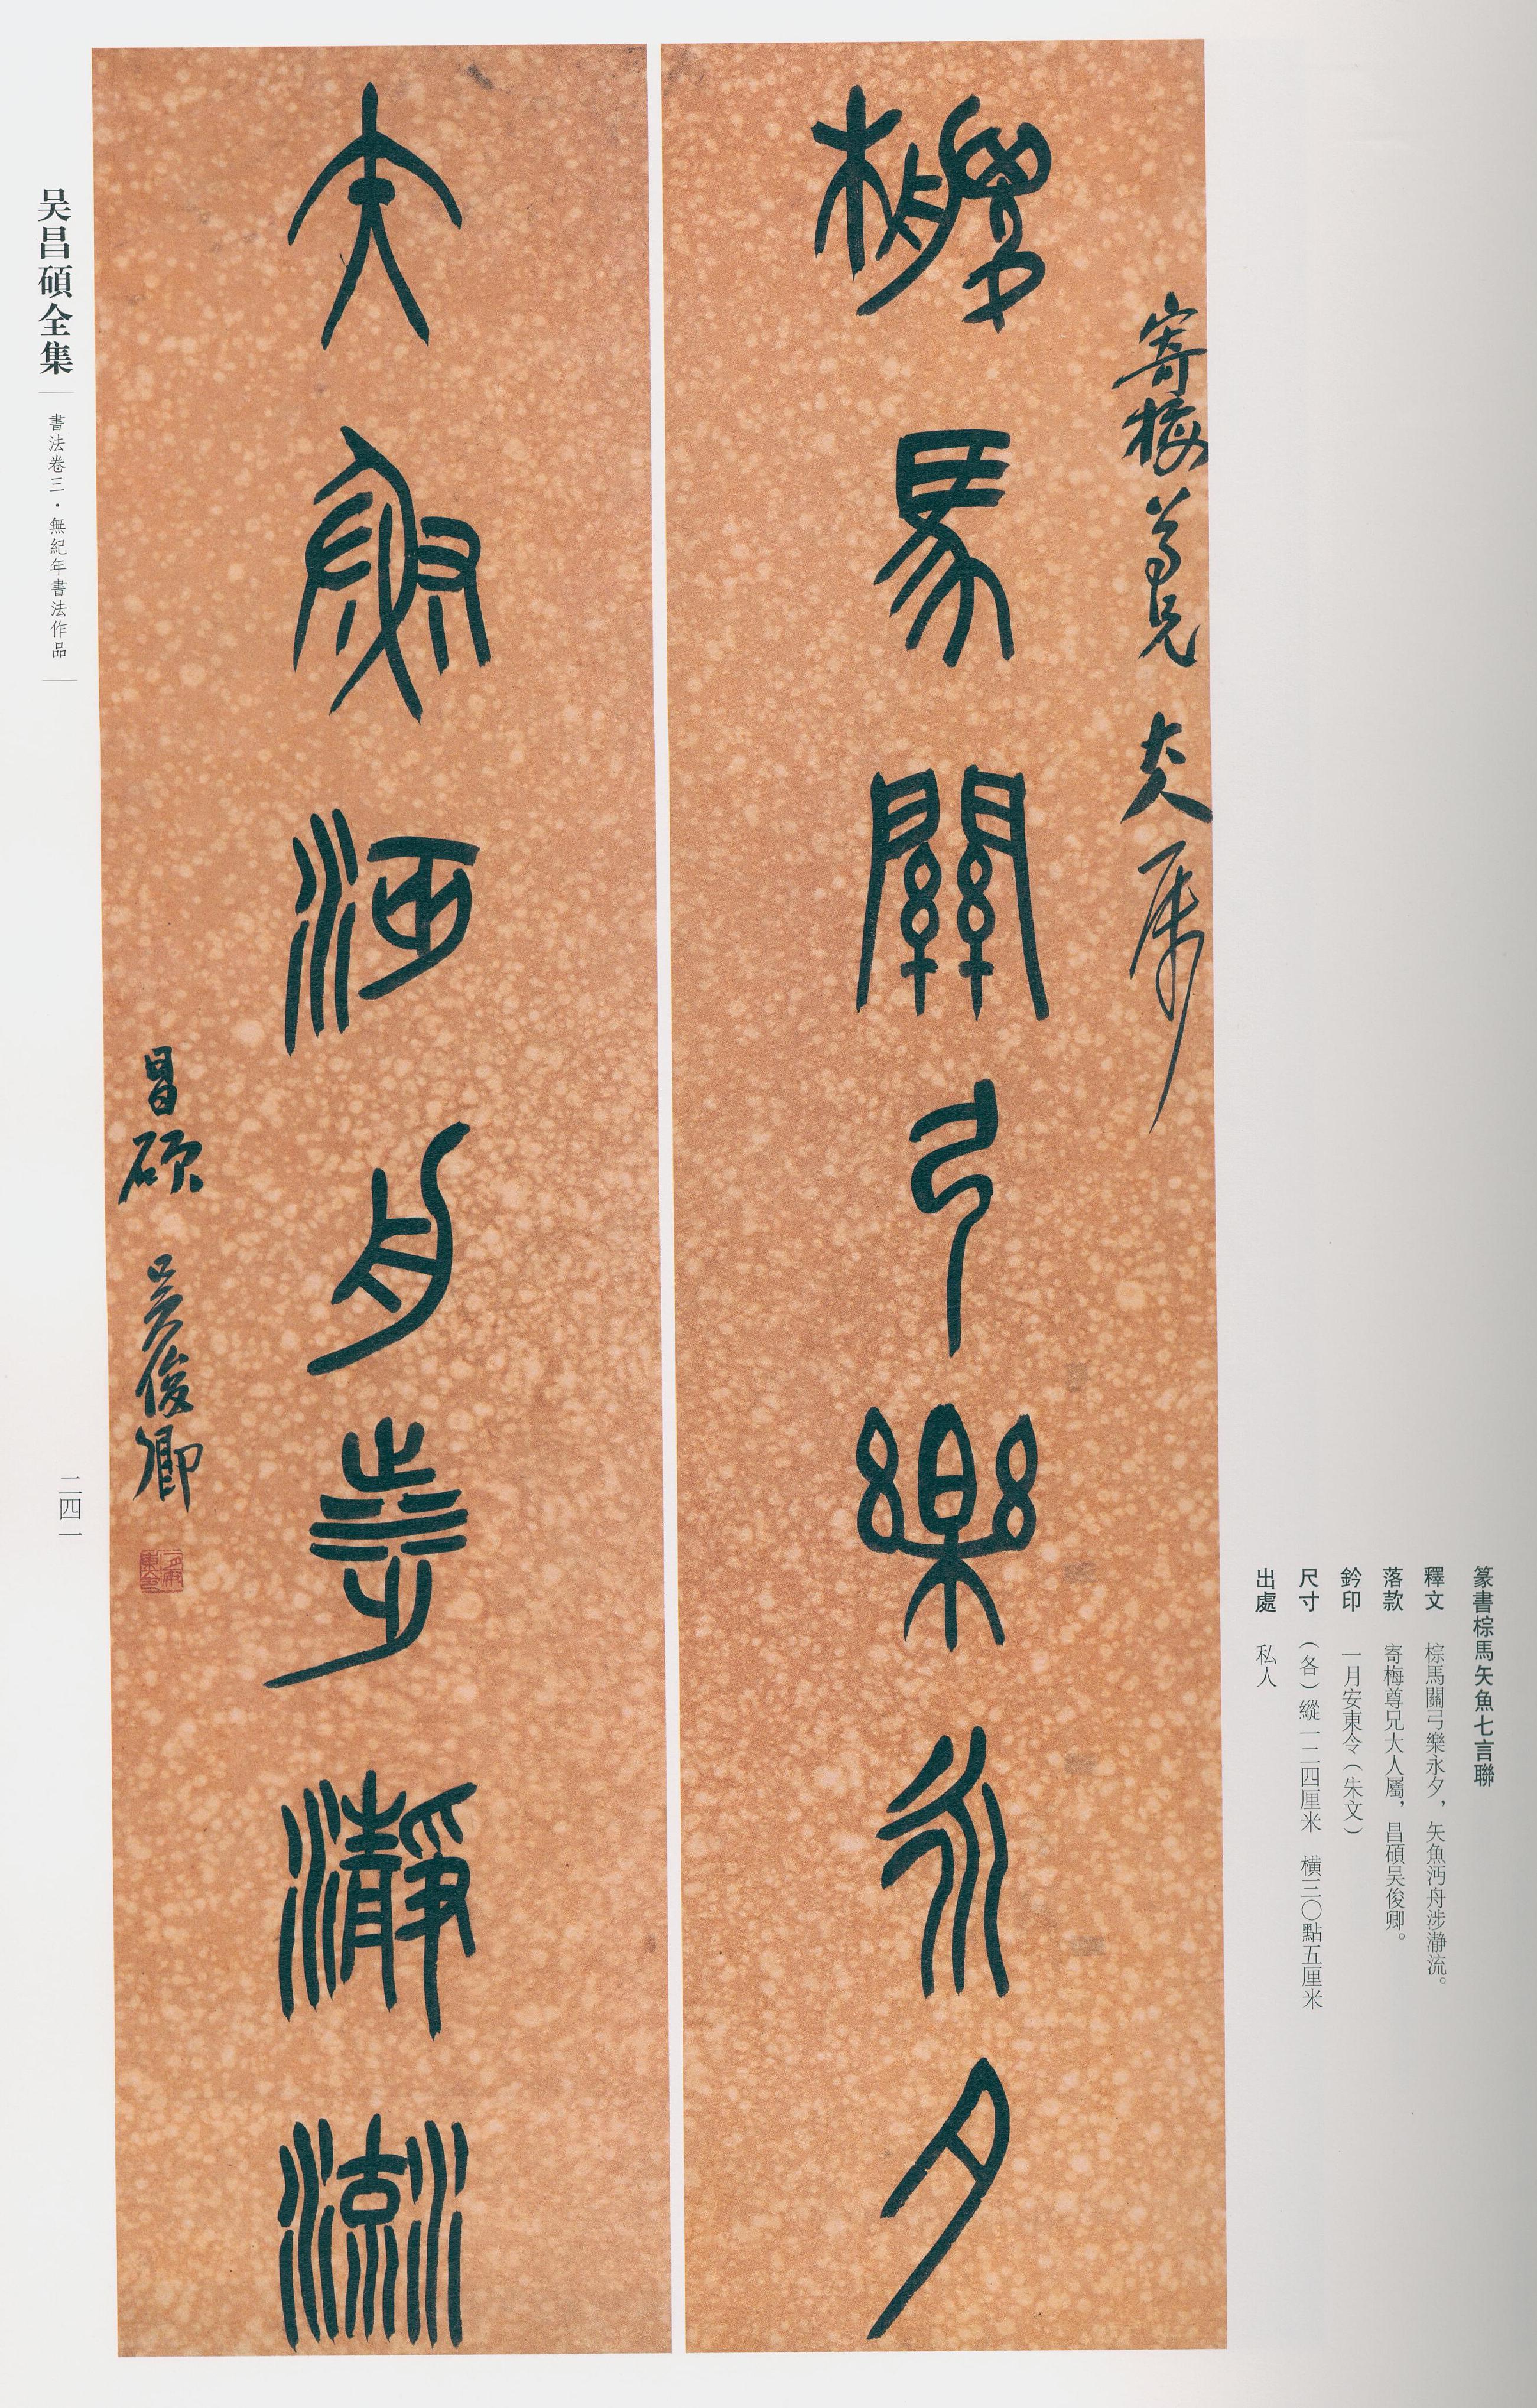 篆書棕馬矢魚七言聯
釋文 棕馬關弓樂永夕，矢魚沔舟涉瀞流。
落款 寄梅尊兄大人屬，昌碩吴俊卿。
鈐印 一月安東令（朱文）
尺寸 （各）縱一二四厘米 横三〇點五厘米
出處 私人
寄梅尊兄大人屬
棕馬關弓樂永夕
矢魚沔舟涉瀞流
昌碩 吴俊卿
一月安東令
吴昌碩全集
書法卷三·無紀年書法作品
二四一